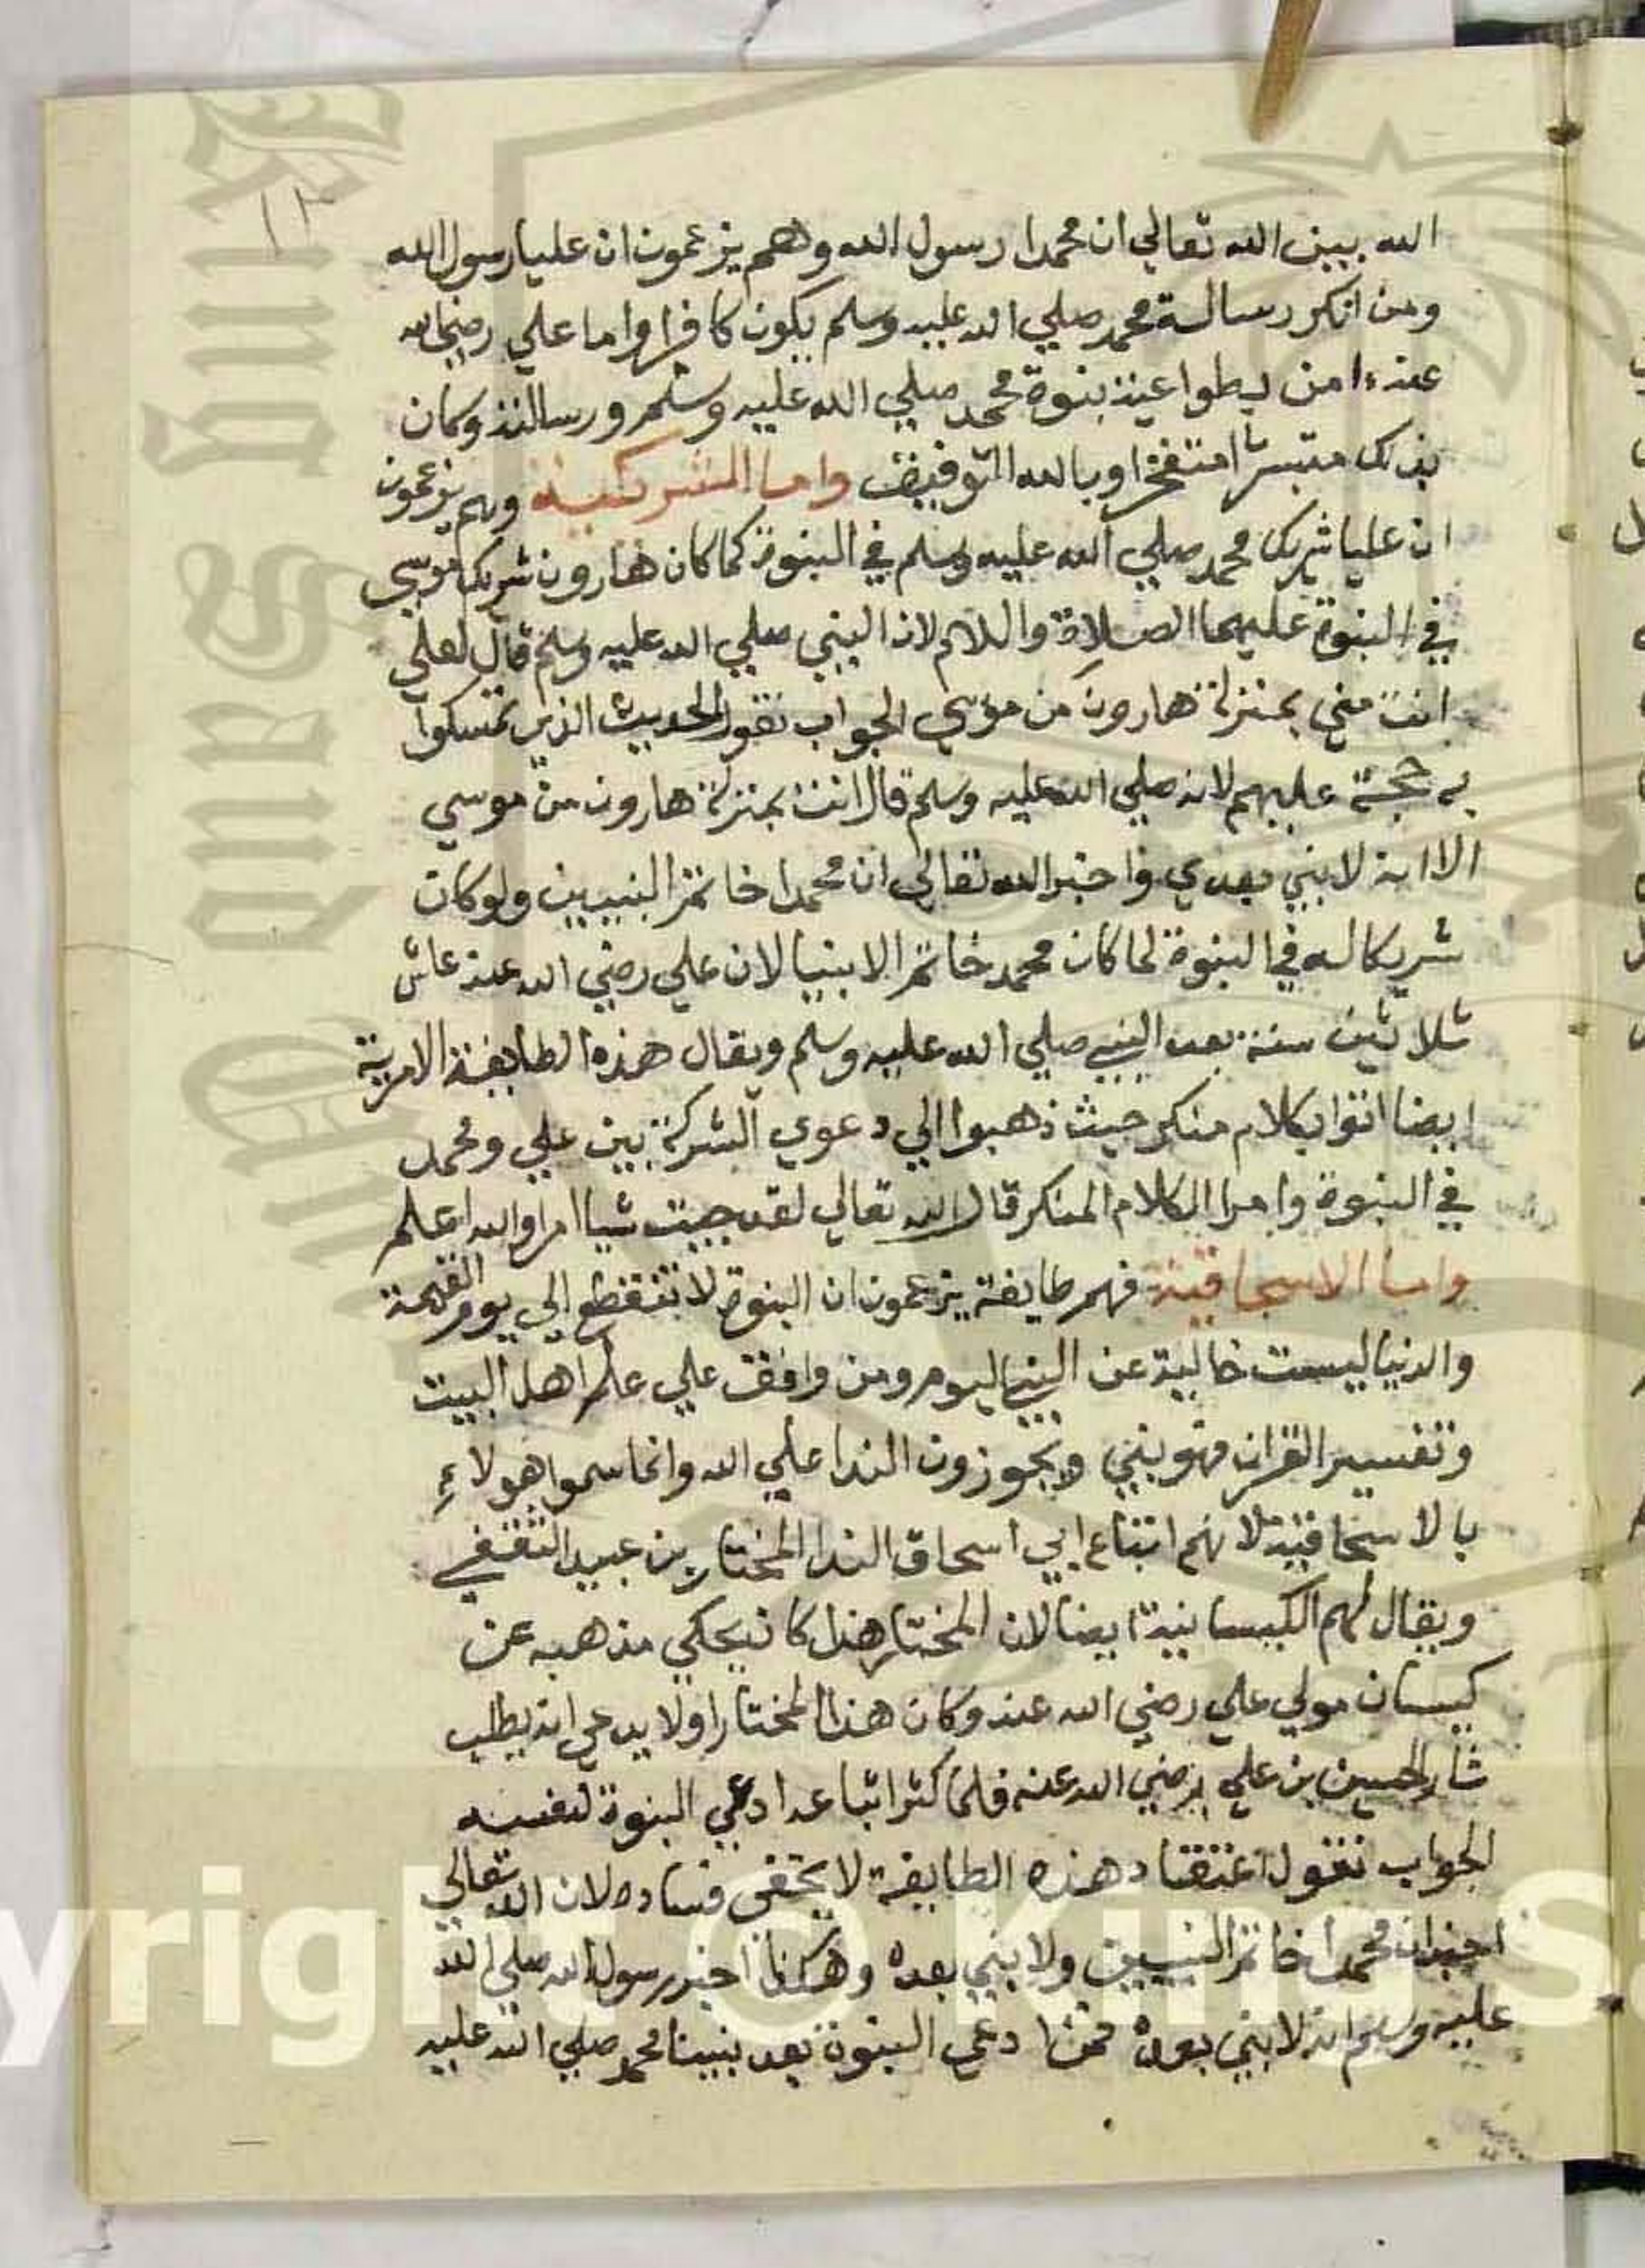 ١٣
الله ببين الله تعالي ان محمدا رسول الله وهم يزعمون ان عليا رسول الله
ومن انكر رسالة محمد صلي الله عليه وسلم يكون كافرا واما علي رضي الله
عنه امن بنبوة محمد صلي الله عليه وسلم ورسالته وكان
بذلك متبسترا مفتخرا وبالله التوفيق واما الشركية وهم يزعمون
ان عليا شريك محمد صلي الله عليه وسلم في النبوة كما كان هارون شريك موسي
في النبوة عليهما الصلاة والسلام لان النبي صلي الله عليه وسلم قال لعلي
انت مني بمنزلة هارون من موسي الجواب نقول الحديث الذي تمسكوا
به حجة عليهم لانه صلي الله عليه وسلم قال انت بمنزلة هارون من موسي
الا انه لا نبي بعدي واخبر الله تعالي ان محمدا خاتم النبيين ولو كان
شريكا له في النبوة لما كان محمد خاتم الانبيا لان علي رضي الله عنه عاش
ثلاثين سنة بعد النبي صلي الله عليه وسلم ويقال هذه الطايفة الامرية
ايضا اتوا بكلام منكر حيث ذهبوا الي دعوي الشركة بين علي ومحمد
في النبوة وامرا الكلام المنكر قال الله تعالي لقد جيت شيا امرا والله اعلم
واما الاسحاقية فهم طايفة يزعمون ان النبوة لا تنقطع الي يوم القيمة
والدنيا ليست خالية عن النبي اليوم ومن وافق علي علم اهل البيت
وتفسير القران فهو نبي ويجوزون الندا علي الله وانما سموا هولاء
بالاسحاقية لانهم اتباع ابي اسحاق الندا المختار بن عبيد الثقفي
ويقال لهم الكيسانية ايضا لان المختار هذا كان يحكي مذهبه عن
كيسان مولي علي رضي الله عنه وكان هذا المختار اولا يدعي انه يطلب
ثار الحسين بن علي رضي الله عنه فلما كثر اتباعه ادعي النبوة لنفسه
الجواب نقول اعتقاد هذه الطايفة لا يخفي فساده لان الله تعالي
اخبر ان محمدا خاتم النبيين ولا نبي بعده وهكذا اخبر رسول الله صلي الله
عليه وسلم انه لا نبي بعده فمن ادعي النبوة بعد نبينا محمد صلي الله عليه
yright © King Sa